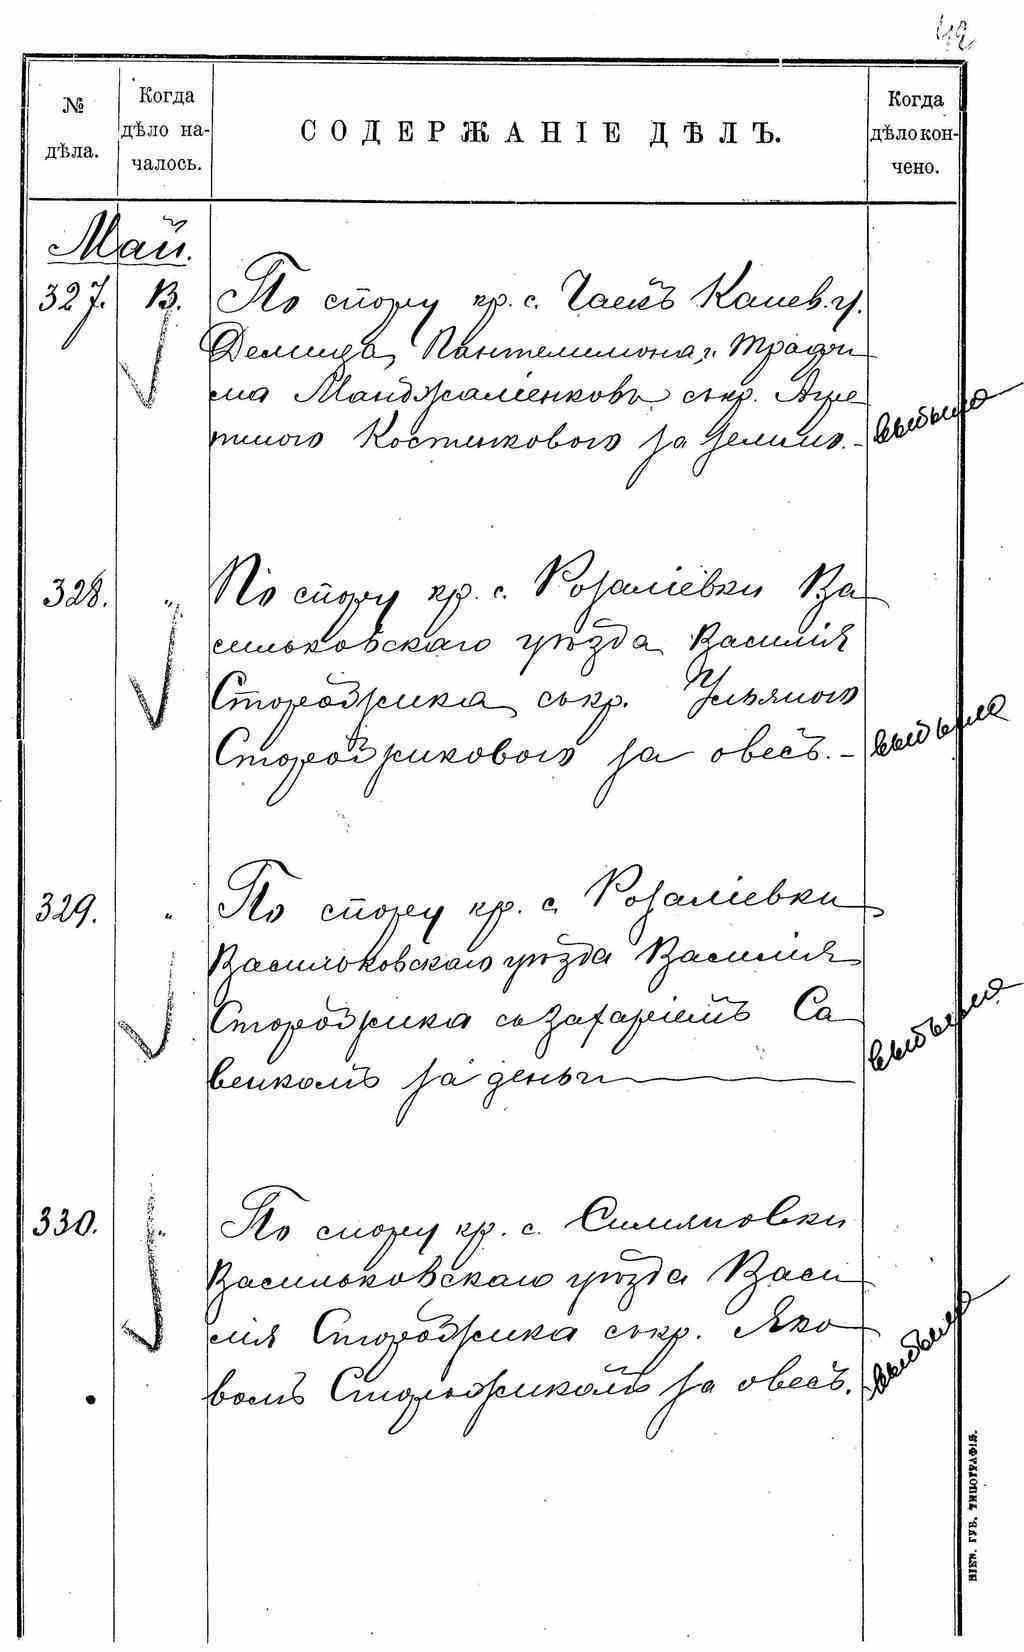 42
№ дѣла.
Когда дѣло на-чалось.
СОДЕРЖАНІЕ ДѢЛЪ.
Когда дѣло кон-чено.
Май.
327. 13. По спору кр. с. Канев. у.
Демида, Пантелимона, и Трофи
ма съ кр. Агре
Костенкового за землю. - выбыло
328. " По спору кр. с. Розаліевки Ва
сильковскаго уѣзда Василія
Сторожика съ кр. Ульяного
Сторожикового за овесъ. - выбыло
329. " По спору кр. с. Розаліевки
Васильковскаго уѣзда Василія
Сторожика съ Захаріемъ Са
венкомъ за деньги выбыло
330. " По спору кр. с.
Васильковскаго уѣзда Васи
лія Сторожика съ кр. Яко
вомъ Сторожикомъ за овесъ. выбыло
КІЕВ. ГУБ. ТИПОГРАФІЯ.